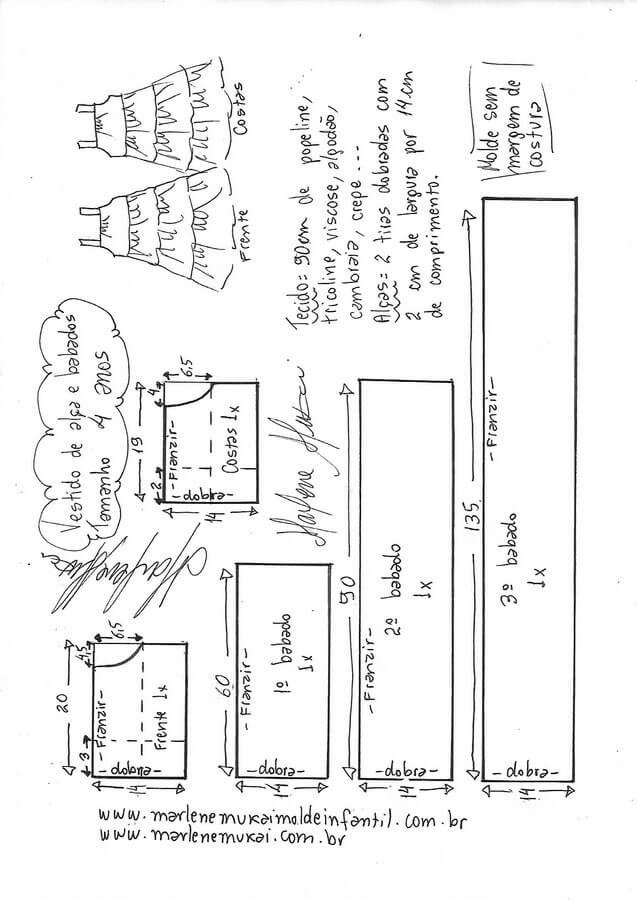 Costas
Frente
Vestido de alça e babados
Tamanho 4 anos
Tecido= 90cm de popeline,
tricoline, viscose, algodão,
cambraia, crepe...
Alças= 2 tiras dobradas com
2 cm de largura por 14cm
de comprimento.
Molde sem
margem de
costura
19
4
6,5
2
-Franzir-
Costas 1x
-dobra-
14
Marlene Mukai
Marlene Mukai
20
4,5
6,5
3
-Franzir-
Frente 1x
-dobra-
14
60
-Franzir-
1º babado
1x
-dobra-
14
90
-Franzir-
2º babado
1x
-dobra-
14
135
-Franzir-
3º babado
1x
-dobra-
14
www.marlenemukaimoldeinfantil.com.br
www.marlenemukai.com.br